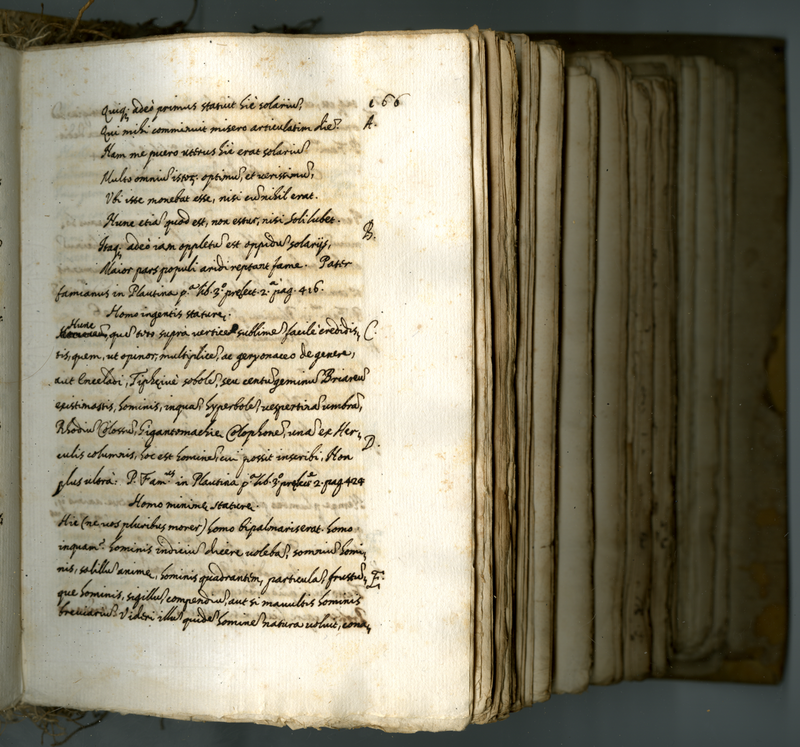 166
Quiq; adeò primus statuit hîc solariũ,
Qui mihi comminuit misero articulatim diẽ.
A.
Nam me puero uterus hic erat solariũ
Multo omniũ istoꝝ optimũ, et uerissimũ,
Vbi iste monebat esse, nisi cũ nihil erat.
Nunc etiã quod est, non estur, nisi soli lubet.
B.
Itaq; adeò iam oppletũ est oppidũ solarijs,
Maior pars populi aridi reptant fame. Pater
famianus in Plautina p.ª lib. 3.º prolect. 2.ª pag. 416.
Homo ingentis staturę.
Hunc, quẽ toto supra verticẽ sublimẽ facilè credidis,
C.
tis, quem, ut opinor, multiplicẽ, ac geryonaceo de genere,
aut Enceladi, sobolẽ, seu centũgeminũ Briareũ
existimastis, hominis, inquã, hyperbolẽ, uespertinã umbrã,
Rhodiũ Colossũ, Gigantomachię Colophonẽ, unã ex Her,
D.
culis columnis, hoc est hominẽ, cui possit inscribi, Non
plus ultrà. P. Fam.us in Plautina p.ª lib. 3.º prolect.ª 2. pag. 424
Homo minimę staturę.
Hic (ne uos pluribus morer) homo bipalmaris erat. homo
inquam? hominis indiciũ dicere uolebã, somniũ homi,
nis, salillũ animę, hominis quadrantem, particulã, frustũ,
E.
que hominis, sigillũ, compendiũ, aut si mauultis hominis
breuiariũ. Videri illũ quidẽ hominẽ natura uoluit, cona,